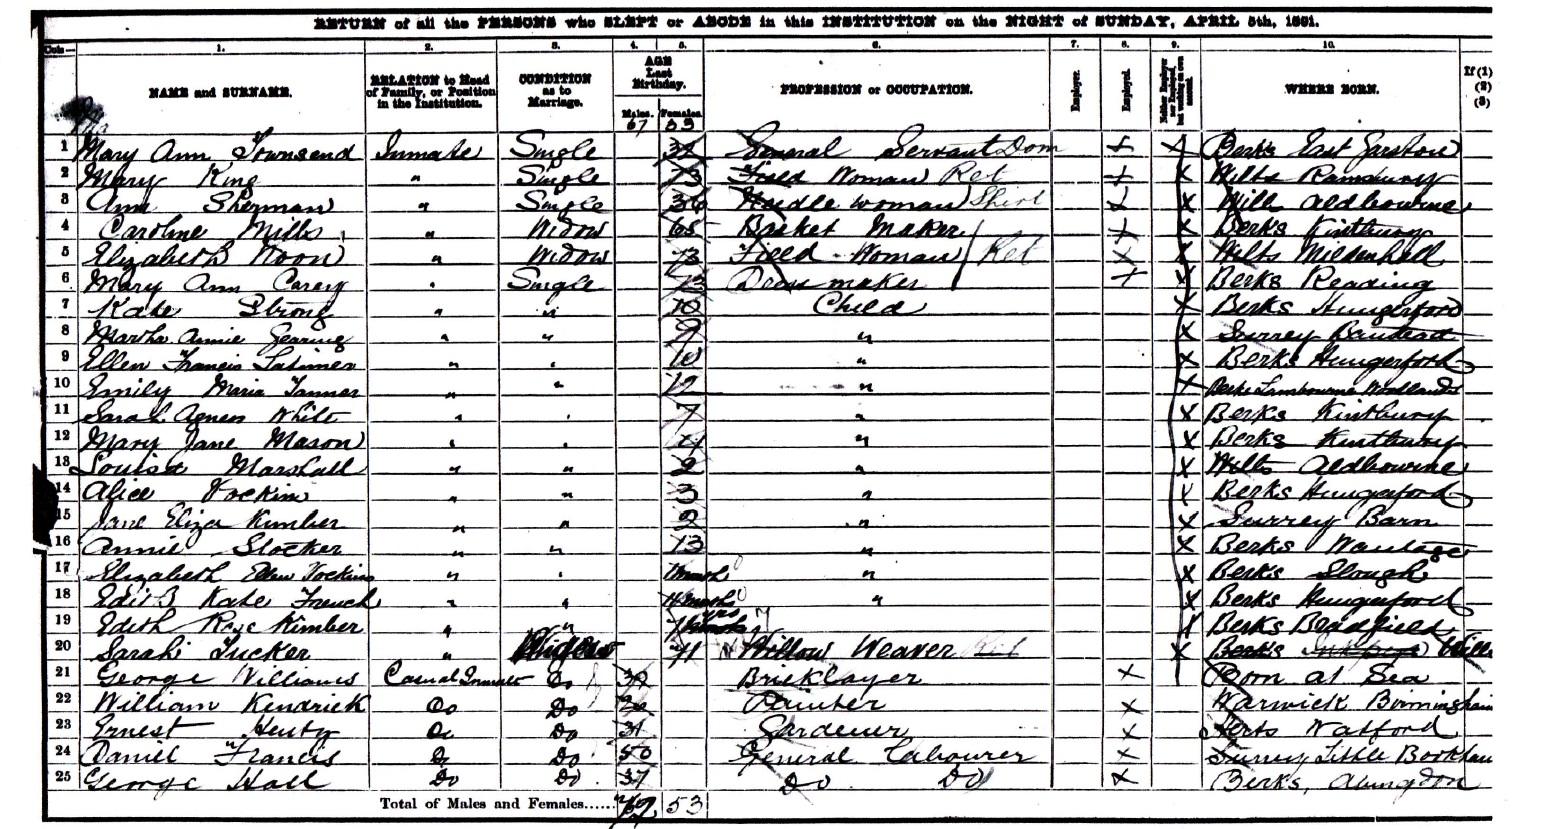 RETURN of all the PERSONS who SLEPT or ABODE in this INSTITUTION on the NIGHT of SUNDAY, APRIL 5th, 1891.
1. 2. 3. 4. 5. 6. 7. 8. 9. 10.
NAME and SURNAME. RELATION to Head of Family, or Position in the Institution. CONDITION as to Marriage. AGE Last Birthday. Males. Females. PROFESSION or OCCUPATION. Employer. Employed. Neither Employer nor Employed, but working on own account. WHERE BORN. If (1) (2) (3)
67 53
1 Mary Ann Townsend Inmate Single 32 General Servant Dom X X Berks East Garston
2 Mary King " Single 73 Field Woman Ret X X Wilts Ramsbury
3 Ann Sherman " Single 36 Needle woman Shirt X X Wilts Aldbourne
4 Caroline Mills " Widow 65 Basket Maker X X Berks Kintbury
5 Elizabeth Noon " Widow 73 Field Woman Ret X X Wilts Mildenhall
6 Mary Ann Carey " Single 73 Dressmaker X X Berks Reading
7 Kate Strong " " 10 Child X Berks Hungerford
8 Martha Annie Gearing " " 9 " X Surrey Banstead
9 Ellen Francis Latimer " " 10 " X Berks Hungerford
10 Emily Maria Tanner " " 12 " X Berks Lambourne Woodlands
11 Sarah Agnes White " " 7 " X Berks Kintbury
12 Mary Jane Mason " " 4 " X Berks Kintbury
13 Louisa Marshall " " 2 " X Wilts Aldbourne
14 Alice Vockins " " 3 " X Berks Hungerford
15 Jane Eliza Kimber " " 2 " X Surrey Barn
16 Annie Stocker " " 13 " X Berks Wantage
17 Elizabeth Ellen Vockins " " 1 month " X Berks Slough
18 Edith Kate French " " months " X Berks Hungerford
19 Edith Rose Kimber " " 7 yrs X Berks Bradfield
20 Sarah Tucker " Widow 71 Willow Weaver Ret X Berks Wilts
21 George Williams Casual Inmate Do Bricklayer X Born at Sea
22 William Kendrick Do Do Painter X Warwick Birmingham
23 Ernest Henty Do Do 31 Gardener X Herts Watford
24 Daniel Francis Do Do 50 General Labourer X Surrey Little Bookham
25 George Hall Do Do 37 Do Do X Berks, Abingdon
Total of Males and Females...... 67 53